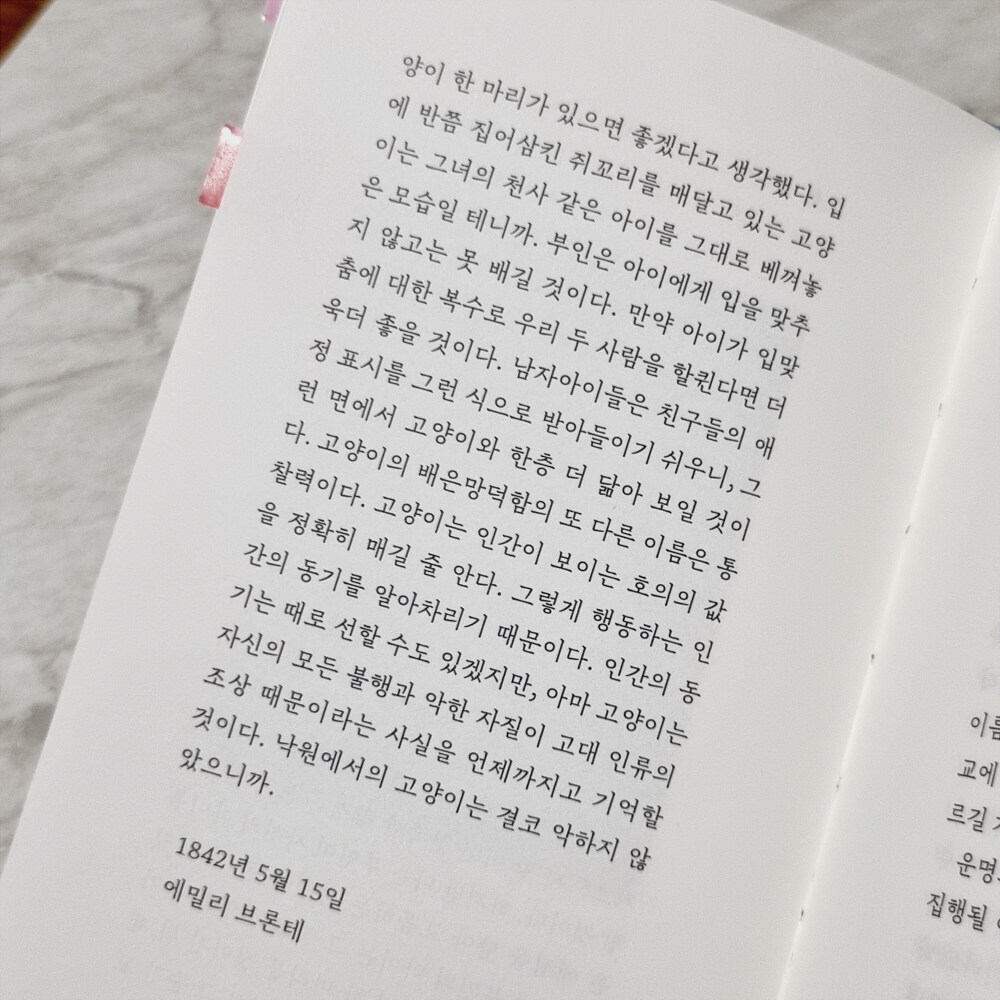 양이 한 마리가 있으면 좋겠다고 생각했다. 입
에 반쯤 집어삼킨 쥐꼬리를 매달고 있는 고양
이는 그녀의 천사 같은 아이를 그대로 베껴놓
은 모습일 테니까. 부인은 아이에게 입을 맞추
지 않고는 못 배길 것이다. 만약 아이가 입맞
춤에 대한 복수로 우리 두 사람을 할퀸다면 더
욱더 좋을 것이다. 남자아이들은 친구들의 애
정 표시를 그런 식으로 받아들이기 쉬우니, 그
런 면에서 고양이와 한층 더 닮아 보일 것이
다. 고양이의 배은망덕함의 또 다른 이름은 통
찰력이다. 고양이는 인간이 보이는 호의의 값
을 정확히 매길 줄 안다. 그렇게 행동하는 인
간의 동기를 알아차리기 때문이다. 인간의 동
기는 때로 선할 수도 있겠지만, 아마 고양이는
자신의 모든 불행과 악한 자질이 고대 인류의
조상 때문이라는 사실을 언제까지고 기억할
것이다. 낙원에서의 고양이는 결코 악하지 않
았으니까.
1842년 5월 15일
에밀리 브론테
이름
교에
르길
운명
집행될